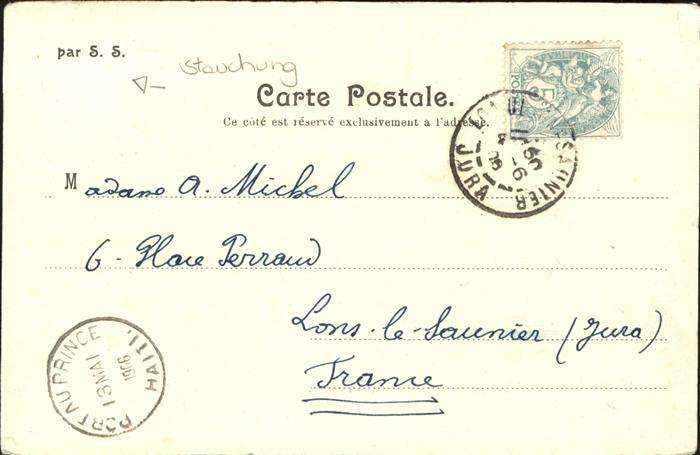 par S. S.
Stauchung
Carte Postale.
Ce côté est réservé exclusivement à l'adresse.
Madame A. Michel
6 - Place Perraud
Lons-le-Saunier (Jura)
France
PORT AU PRINCE HAITI
13 MAI
1906
SAUNIER
JURA